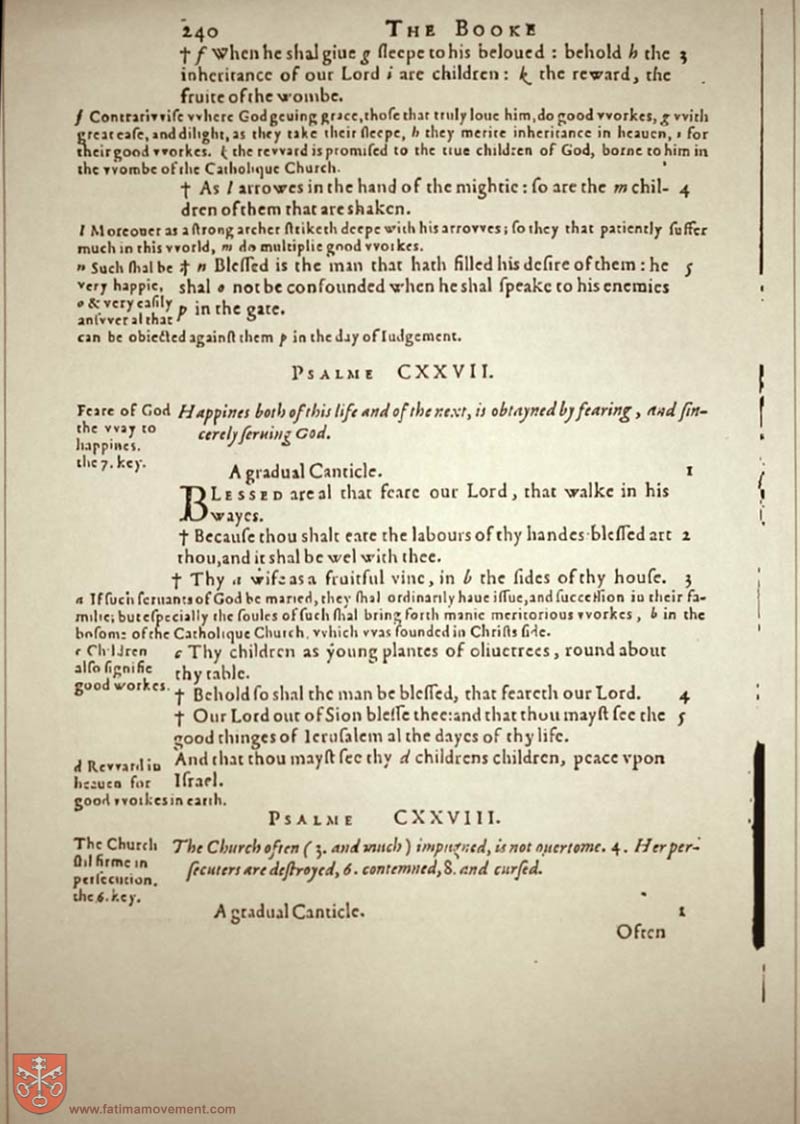 240 THE BOOKE
† f When he shal giue g sleepe to his beloued : behold h the 3
inheritance of our Lord i are children : k the reward, the
fruite of the wombe.
f Contrariwise vvhere God geuing grace, those that truly loue him, do good vvorkes, g vvith
great ease, and dilight, as they take their sleepe, h they merite inheritance in heauen, i for
their good vvorkes. k the revvard is promised to the true children of God, borne to him in
the vvombe of the Catholique Church.
† As l arrowes in the hand of the mightie : so are the m chil- 4
dren of them that are shaken.
l Moreouer as a strong archer striketh deepe with his arrovves; so they that patiently suffer
much in this vvorld, m do multiplie good vvorkes.
n Such shal be
very happie,
o & very easily
ansvver al that
† n Blessed is the man that hath filled his desire of them : he 5
shal o not be confounded when he shal speake to his enemies
p in the gate.
can be obiected against them p in the day of Iudgement.
PSALME CXXVII.
Feare of God
the vvay to
happines.
the 7. key.
Happines both of this life and of the next, is obtayned by fearing, and sin-
cerely seruing God.
A gradual Canticle. 1
BLESSED are al that feare our Lord, that walke in his
wayes.
† Because thou shalt eate the labours of thy handes blessed art 2
thou, and it shal be wel with thee.
† Thy a wife as a fruitful vine, in b the sides of thy house. 3
a If such seruants of God be maried, they shal ordinarily haue issue, and succession in their fa-
milie; but especially the soules of such shal bring forth manie meritorious vvorkes, b in the
bosome of the Catholique Church, vvhich vvas founded in Christs side.
c Children
also signifie
good workes.
c Thy children as young plantes of oliuetrees, round about
thy table.
† Behold so shal the man be blessed, that feareth our Lord. 4
† Our Lord out of Sion blesse thee: and that thou mayst see the 5
good thinges of Ierusalem al the dayes of thy life.
d Revvard in
heauen for
good vvorkes in earth.
And that thou mayst see thy d childrens children, peace vpon
Israel.
PSALME CXXVIII.
The Church
stil firme in
persecution.
the 6. key.
The Church often ( 3. and much ) impugned, is not ouercome. 4. Her per-
secuters are destroyed, 6. contemned, 8. and cursed.
A gradual Canticle. 1
Often
www.fatimamovement.com